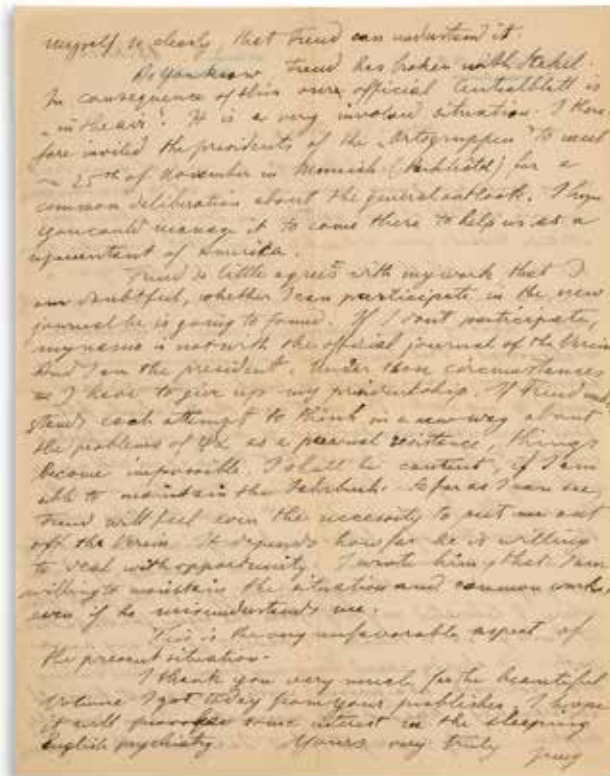 myself so clearly, that Freud can understand it.
As You know Freud has broken with Stekel.
In consequence of this our official Centralblatt is
"in the air". It is a very involved situation. I there-
fore invited the presidents of the "Ortsgruppen" to meet
25th of November in Munich (Parkhôtel) for a
common deliberation about the general outlook. I hope
you could manage it to come there to help us as a
representant of America.
Freud so little agrees with my work that I
am doubtful, whether I can participate in the new
journal he is going to found. If I dont participate,
my name is not with the official journal of the Verein
And I am the president. Under these circumstances
I have to give up my presidentship. If Freud
stands each attempt to think in a new way about
the problems of ΨΑ as a personal resistence, things
become impossible. I shall be content, if I am
able to maintain the Jahrbuch. So far as I can see,
Freud will feel even the necessity to put me out
off the Verein. It depends how far he is willing
to deal with opportunity. I wrote him, that I am
willing to maintain the situation and common work,
even if he misunderstands me.
This is the very unfavorable aspect of
the present situation.
I thank you very much for the beautiful
Volume I got today from your publisher. I hope
it will provoke some interest in the sleeping
English psychiatry. Yours very truly
Jung